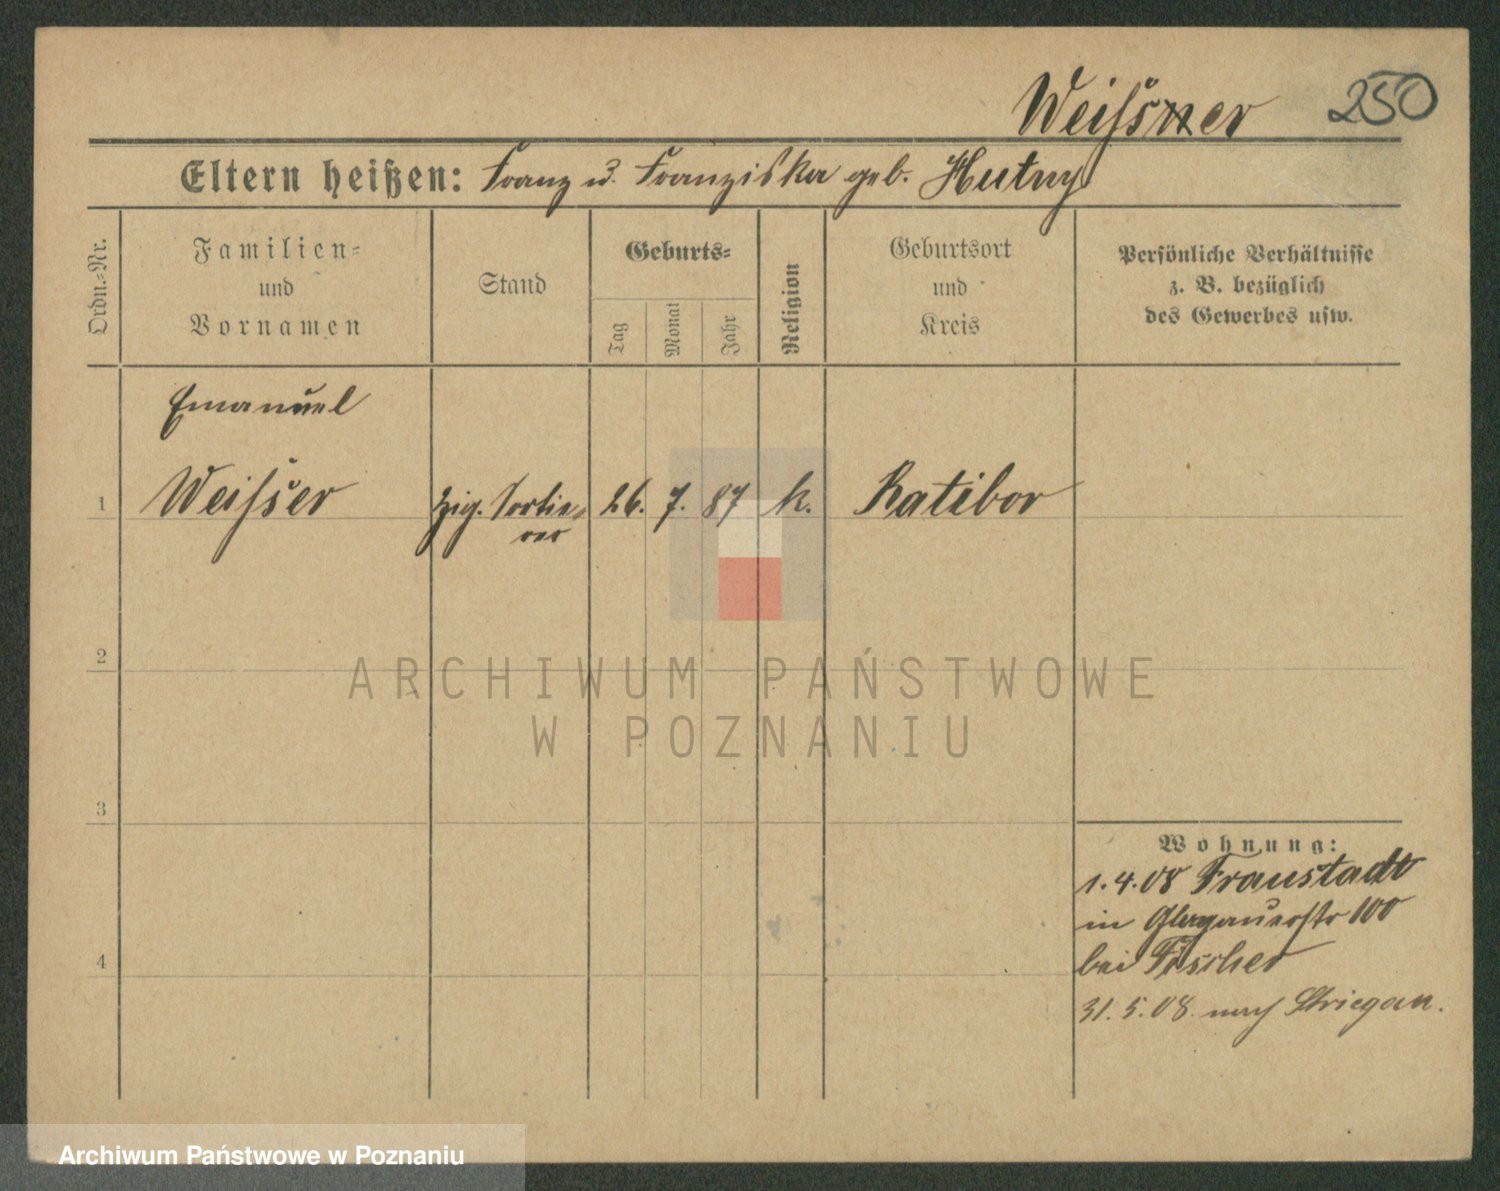 Weiſsner 250
Eltern heißen: Franz u. Franziska geb. Hutny
Ordn.=Nr.
Familien=
und
Vornamen
Stand
Geburts=
Tag
Monat
Jahr
Religion
Geburtsort
und
Kreis
Persönliche Verhältnisse
z. B. bezüglich
des Gewerbes usw.
Emanuel
1 Weiſser Zig. Sortie=
rer
26. 7. 87 k. Ratibor
2
3
4
Wohnung:
1.4.08 Fraustadt
in 100
bei Fischer
31.5.08 nach Striegau.
ARCHIWUM PAŃSTWOWE
W POZNANIU
Archiwum Państwowe w Poznaniu